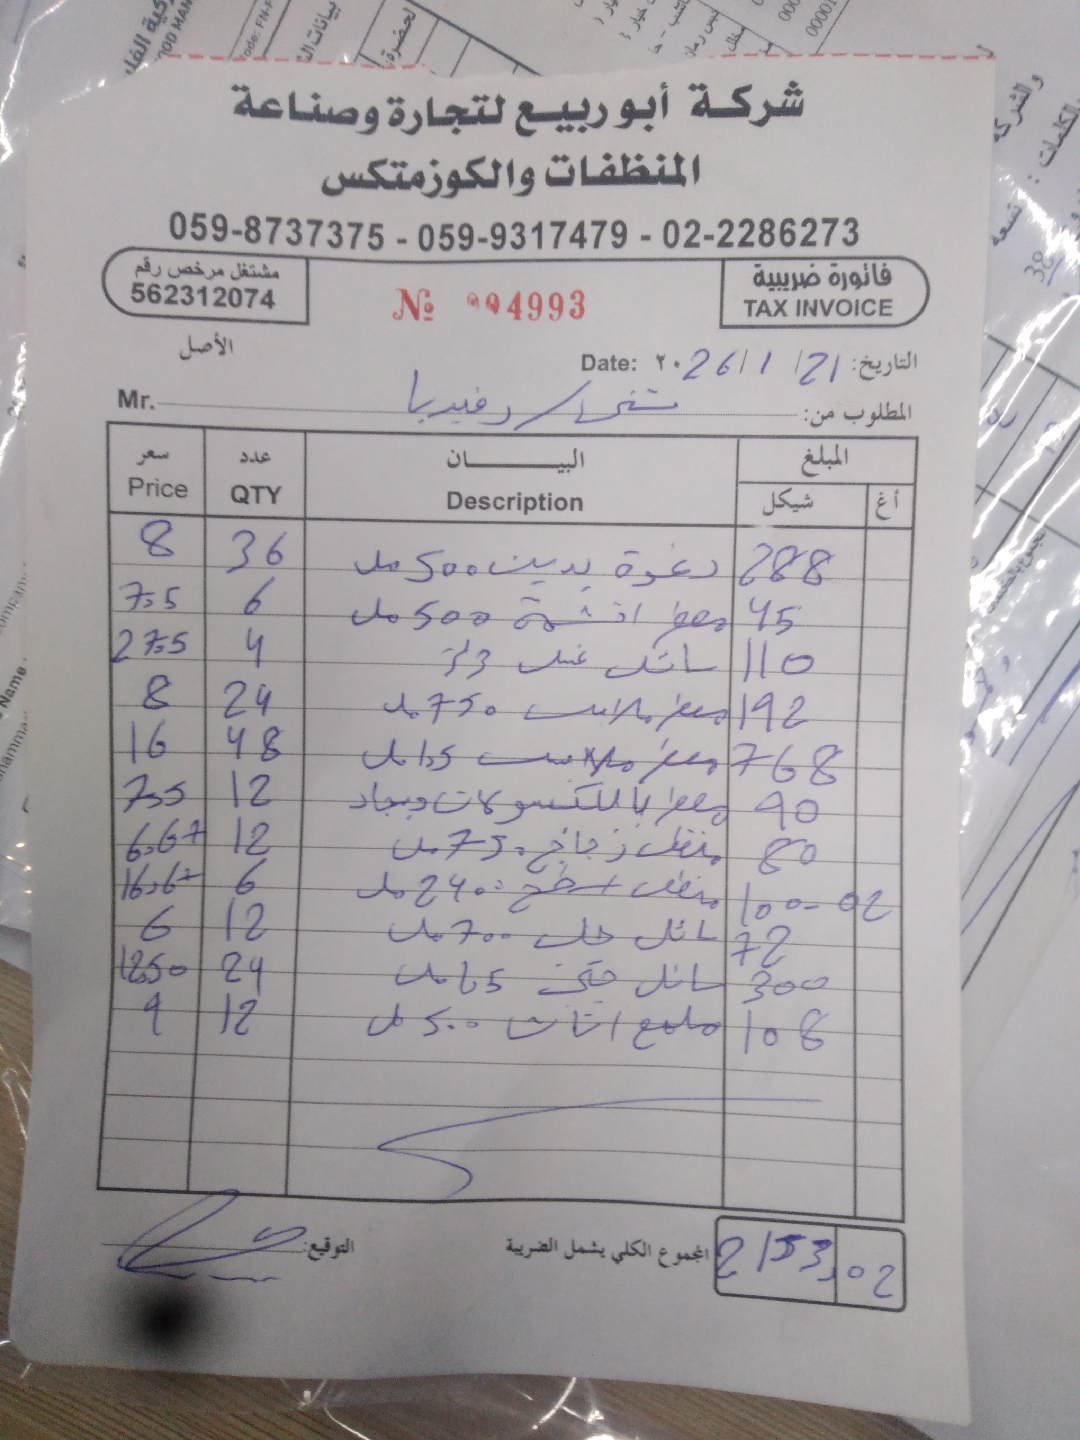 شركة أبو ربيع لتجارة وصناعة
المنظفات والكوزمتكس
059-8737375 - 059-9317479 - 02-2286273
فاتورة ضريبية
TAX INVOICE
№ 004993
مشتغل مرخص رقم
562312074
الأصل
التاريخ: 21/1/2026 Date:
المطلوب من: رفيديا Mr.
المبلغ البيـــان عدد سعر
أغ شيكل Description QTY Price
288 رغوة يدين 500 مل 36 8
45 معطر اقشمة 500 مل 6 7.5
110 سائل غسيل 3 لتر 4 27.5
192 معطر ملابس 750 مل 24 8
768 معطر ملابس 1.5 مل 48 16
90 معطر وسجاد 12 7.5
80 منظف زجاج 750 مل 12 6.67
100-02 منظف اسطح 2400 مل 6 16.67
72 سائل جلي 700 مل 12 6
300 سائل 1.5 مل 24 12.50
108 ملمع اثاث 500 مل 12 9
المجموع الكلي يشمل الضريبة 2153,02
التوقيع: